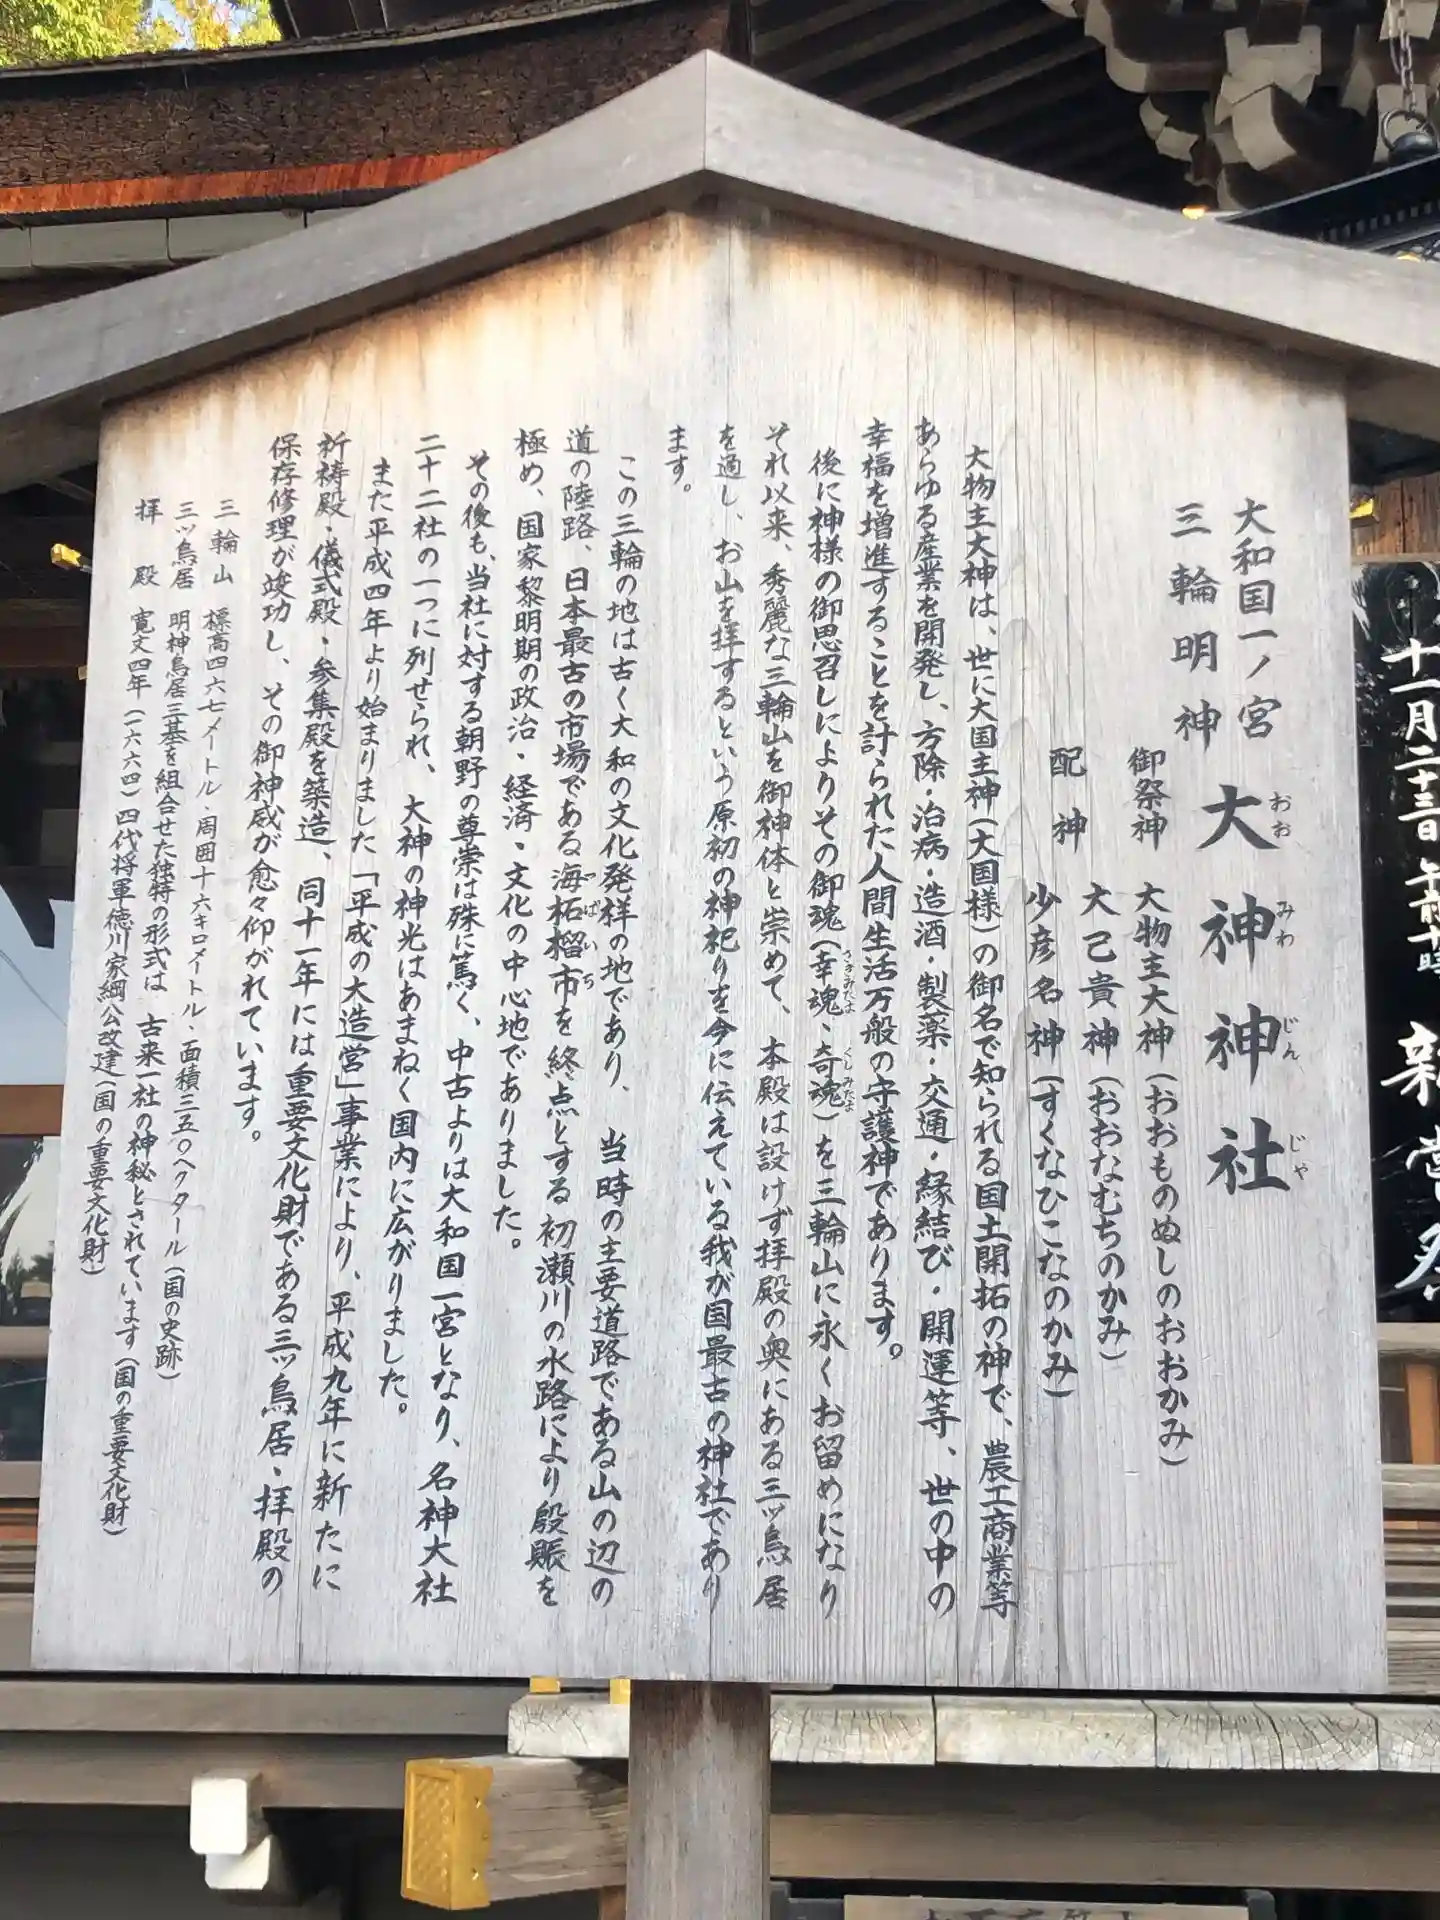 大和国一ノ宮
三輪明神
大神神社
おおみわじんじゃ
御祭神 大物主大神（おおものぬしのおおかみ）
配神 大己貴神（おおなむちのかみ）
少彦名神（すくなひこなのかみ）
大物主大神は、世に大国主神（大国様）の御名で知られる国土開拓の神で、農工商業等
あらゆる産業を開発し、方除・治病・造酒・製薬・交通・縁結び・開運等、世の中の
幸福を増進することを計られた人間生活万般の守護神であります。
後に神様の御思召しによりその御魂（幸魂・奇魂）を三輪山に永くお留めになり
さきみたま くしみたま
それ以来、秀麗な三輪山を御神体と崇めて、本殿は設けず拝殿の奥にある三ッ鳥居
を通し、お山を拝するという原初の神祀りを今に伝えている我が国最古の神社であり
ます。
この三輪の地は古く大和の文化発祥の地であり、当時の主要道路である山の辺の
道の陸路、日本最古の市場である海柘榴市を終点とする初瀬川の水路により殷賑を
つばいち
極め、国家黎明期の政治・経済・文化の中心地でありました。
その後も、当社に対する朝野の尊崇は殊に篤く、中古よりは大和国一宮となり、名神大社
二十二社の一つに列せられ、大神の神光はあまねく国内に広がりました。
また平成四年より始まりました「平成の大造営」事業により、平成九年に新たに
祈祷殿・儀式殿・参集殿を築造、同十一年には重要文化財である三ッ鳥居・拝殿の
保存修理が竣功し、その御神威が愈々仰がれています。
三輪山 標高四六七メートル・周囲十六キロメートル・面積三五〇ヘクタール（国の史跡）
三ッ鳥居 明神鳥居三基を組合せた独特の形式は 古来一社の神秘とされています（国の重要文化財）
拝殿 寛文四年（一六六四）四代将軍徳川家綱公改建（国の重要文化財）
十一月二十三日 午前十時 新嘗祭